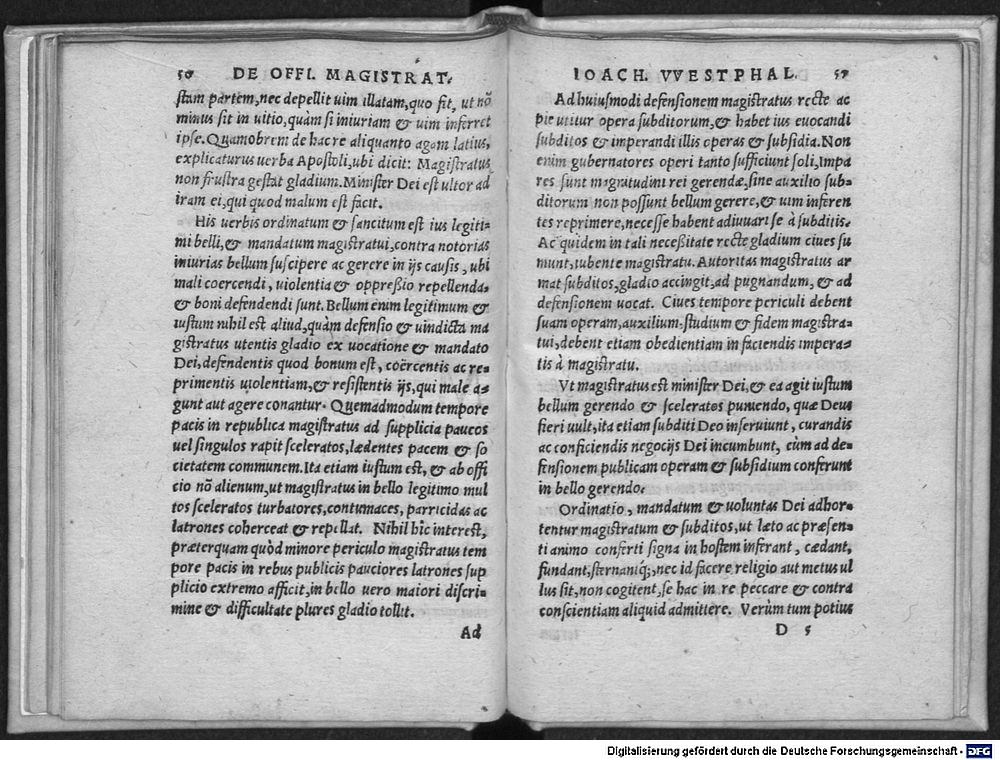 56 DE OFFI. MAGISTRAT.
stam partem, nec depellit uim illatam, quo fit, ut nõ
minus sit in uitio, quàm si iniuriam & uim inferret
ipse. Quamobrem de hac re aliquanto agam latius,
explicaturus uerba Apostoli, ubi dicit: Magistratus
non frustra gestat gladium. Minister Dei est ultor ad
iram ei, qui quod malum est facit.
His uerbis ordinatum & sancitum est ius legiti-
mi belli, & mandatum magistratui, contra notorias
iniurias bellum suscipere ac gerere in ijs causis, ubi
mali coercendi, uiolentia & oppreßio repellenda,
& boni defendendi sunt. Bellum enim legitimum &
iustum nihil est aliud, quàm defensio & uindicta ma
gistratus utentis gladio ex uocatione & mandato
Dei, defendentis quod bonum est, coërcentis ac re-
primentis uiolentiam, & resistentis ijs, qui male a-
gunt aut agere conantur. Quemadmodum tempore
pacis in republica magistratus ad supplicia paucos
uel singulos rapit sceleratos, lædentes pacem & so
cietatem communem. Ita etiam iustum est, & ab offi
cio nõ alienum, ut magistratus in bello legitimo mul
tos sceleratos turbatores, contumaces, parricidas ac
latrones coherceat & repellat. Nihil hîc interest,
præterquam quòd minore periculo magistratus tem
pore pacis in rebus publicis pauciores latrones sup
plicio extremo afficit, in bello uero maiori discri-
mine & difficultate plures gladio tollit.
Ad
IOACH. VVESTPHAL. 57
Ad huiusmodi defensionem magistratus recte ac
pie utitur opera subditorum, & habet ius euocandi
subditos & imperandi illis operas & subsidia. Non
enim gubernatores operi tanto sufficiunt soli, Impa
res sunt magnitudini rei gerendæ, sine auxilio sub-
ditorum non possunt bellum gerere, & uim inferen
tes reprimere, necesse habent adiuuari se à subditis.
Ac quidem in tali neceßitate recte gladium ciues su
munt, iubente magistratu. Autoritas magistratus ar
mat subditos, gladio accingit, ad pugnandum, & ad
defensionem uocat. Ciues tempore periculi debent
suam operam, auxilium, studium & fidem magistra-
tui, debent etiam obedientiam in faciendis impera-
tis à magistratu.
Vt magistratus est minister Dei, & ea agit iustum
bellum gerendo & sceleratos puniendo, quæ Deus
fieri uult, ita etiam subditi Deo inseruiunt, curandis
ac conficiendis negocijs Dei incumbunt, cùm ad de-
fensionem publicam operam & subsidium conferunt
in bello gerendo.
Ordinatio, mandatum & uoluntas Dei adhor-
tentur magistratum & subditos, ut læto ac præsen-
ti animo conferti signa in hostem inferant, cædant,
fundant, sternantq;, nec id facere religio aut metus ul
lus sit, non cogitent, se hac in re peccare & contra
conscientiam aliquid admittere. Verùm tum potius
D 5
Digitalisierung gefördert durch die Deutsche Forschungsgemeinschaft - DFG